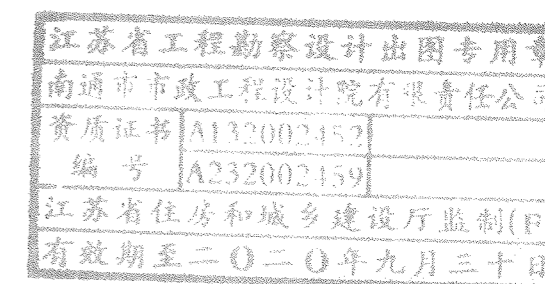 江苏省工程勘察设计出图专用章
南通市市政工程设计院有限责任公司
资质证书
编号
A132002452
A232002459
江苏省住房和城乡建设厅监制(F
有效期至二〇二〇年九月三十日